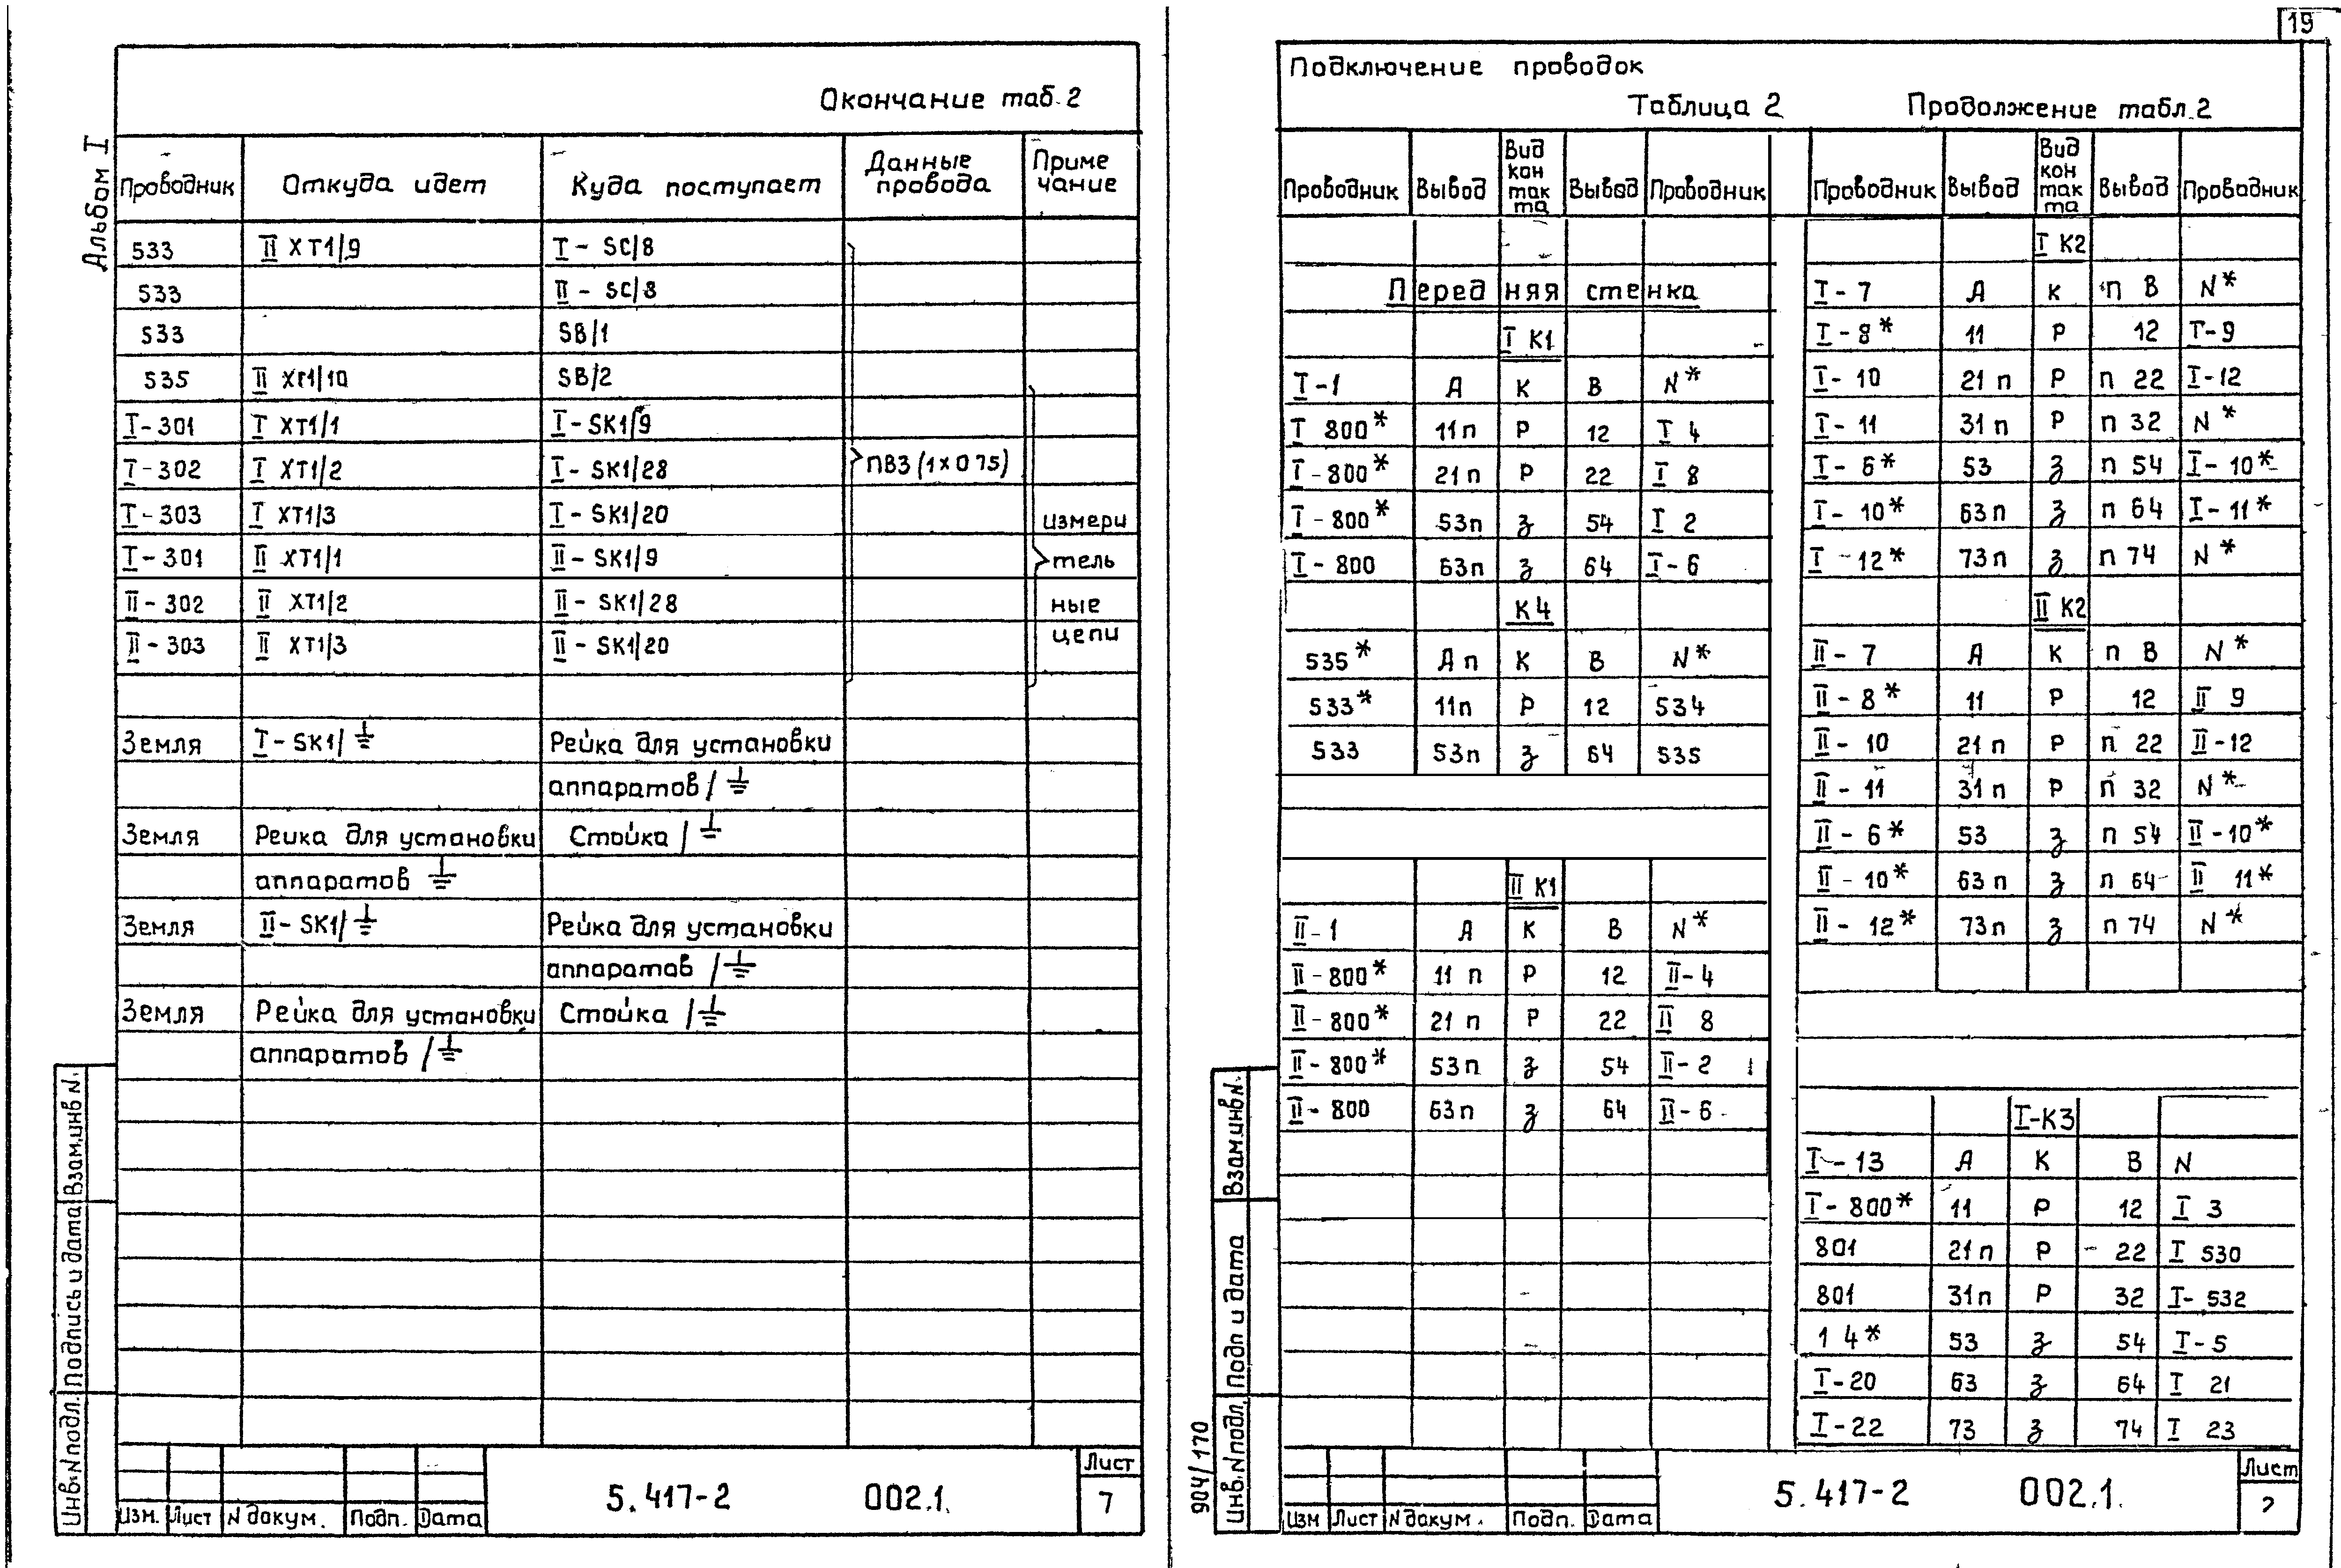 19
Альбом I
Окончание таб. 2
Проводник Откуда идет Куда поступает Данные провода Приме чание
533 II XT1/9 I - SC/8
533 II - SC/8
533 SB/1
535 II XT1/10 SB/2
I-301 I XT1/1 I-SK1/9
I-302 I XT1/2 I-SK1/28 ПВ3 (1×0 75)
I-303 I XT1/3 I-SK1/20 измери
I-301 II XT1/1 II-SK1/9 тель
II-302 II XT1/2 II-SK1/28 ные
II-303 II XT1/3 II-SK1/20 цепи
Земля I-SK1/⏚ Рейка для установки
аппаратов/⏚
Земля Реика для установки Стойка/⏚
аппаратов ⏚
Земля II-SK1/⏚ Рейка для установки
аппаратов/⏚
Земля Рейка для установки Стойка/⏚
аппаратов/⏚
Инв.N подл. Подпись и дата Взам.инв N.
Изм. Лист N докум. Подп. Дата
5.417-2 002.1.
Лист
7
Подключение проводок
Таблица 2
Проводник Вывод Вид кон так та Вывод Проводник
Передняя стенка
I К1
I-1 А К В N*
I 800* 11п Р 12 I 4
I-800* 21п Р 22 I 8
I-800* 53п з 54 I 2
I-800 63п з 64 I-6
К4
535* А п К В N*
533* 11п Р 12 534
533 53п з 64 535
II К1
II-1 А К В N*
II-800* 11 п Р 12 II-4
II-800* 21 п Р 22 II 8
II-800* 53п з 54 II-2
II-800 63п з 64 II-6
Продолжение табл.2
Проводник Вывод Вид кон так та Вывод Проводник
I К2
I-7 А К п В N*
I-8* 11 Р 12 I-9
I-10 21 п Р п 22 I-12
I-11 31 п Р п 32 N*
I-6* 53 з п 54 I-10*
I-10* 63п з п 64 I-11*
I-12* 73п з п 74 N*
II К2
II-7 А К п В N*
II-8* 11 Р 12 II 9
II-10 21 п Р п 22 II-12
II-11 31 п Р п 32 N*
II-6* 53 з п 54 II-10*
II-10* 63 п з п 64 II 11*
II-12* 73п з п 74 N*
I-К3
I-13 А К В N
I-800* 11 Р 12 I 3
801 21п Р 22 I 530
801 31п Р 32 I-532
1 4* 53 з 54 I-5
I-20 63 з 64 I 21
I-22 73 з 74 I 23
904/170
Инв.N подл. Подп и дата Взам.инв N.
Изм Лист N докум. Подп. Дата
5.417-2 002.1.
Лист
2